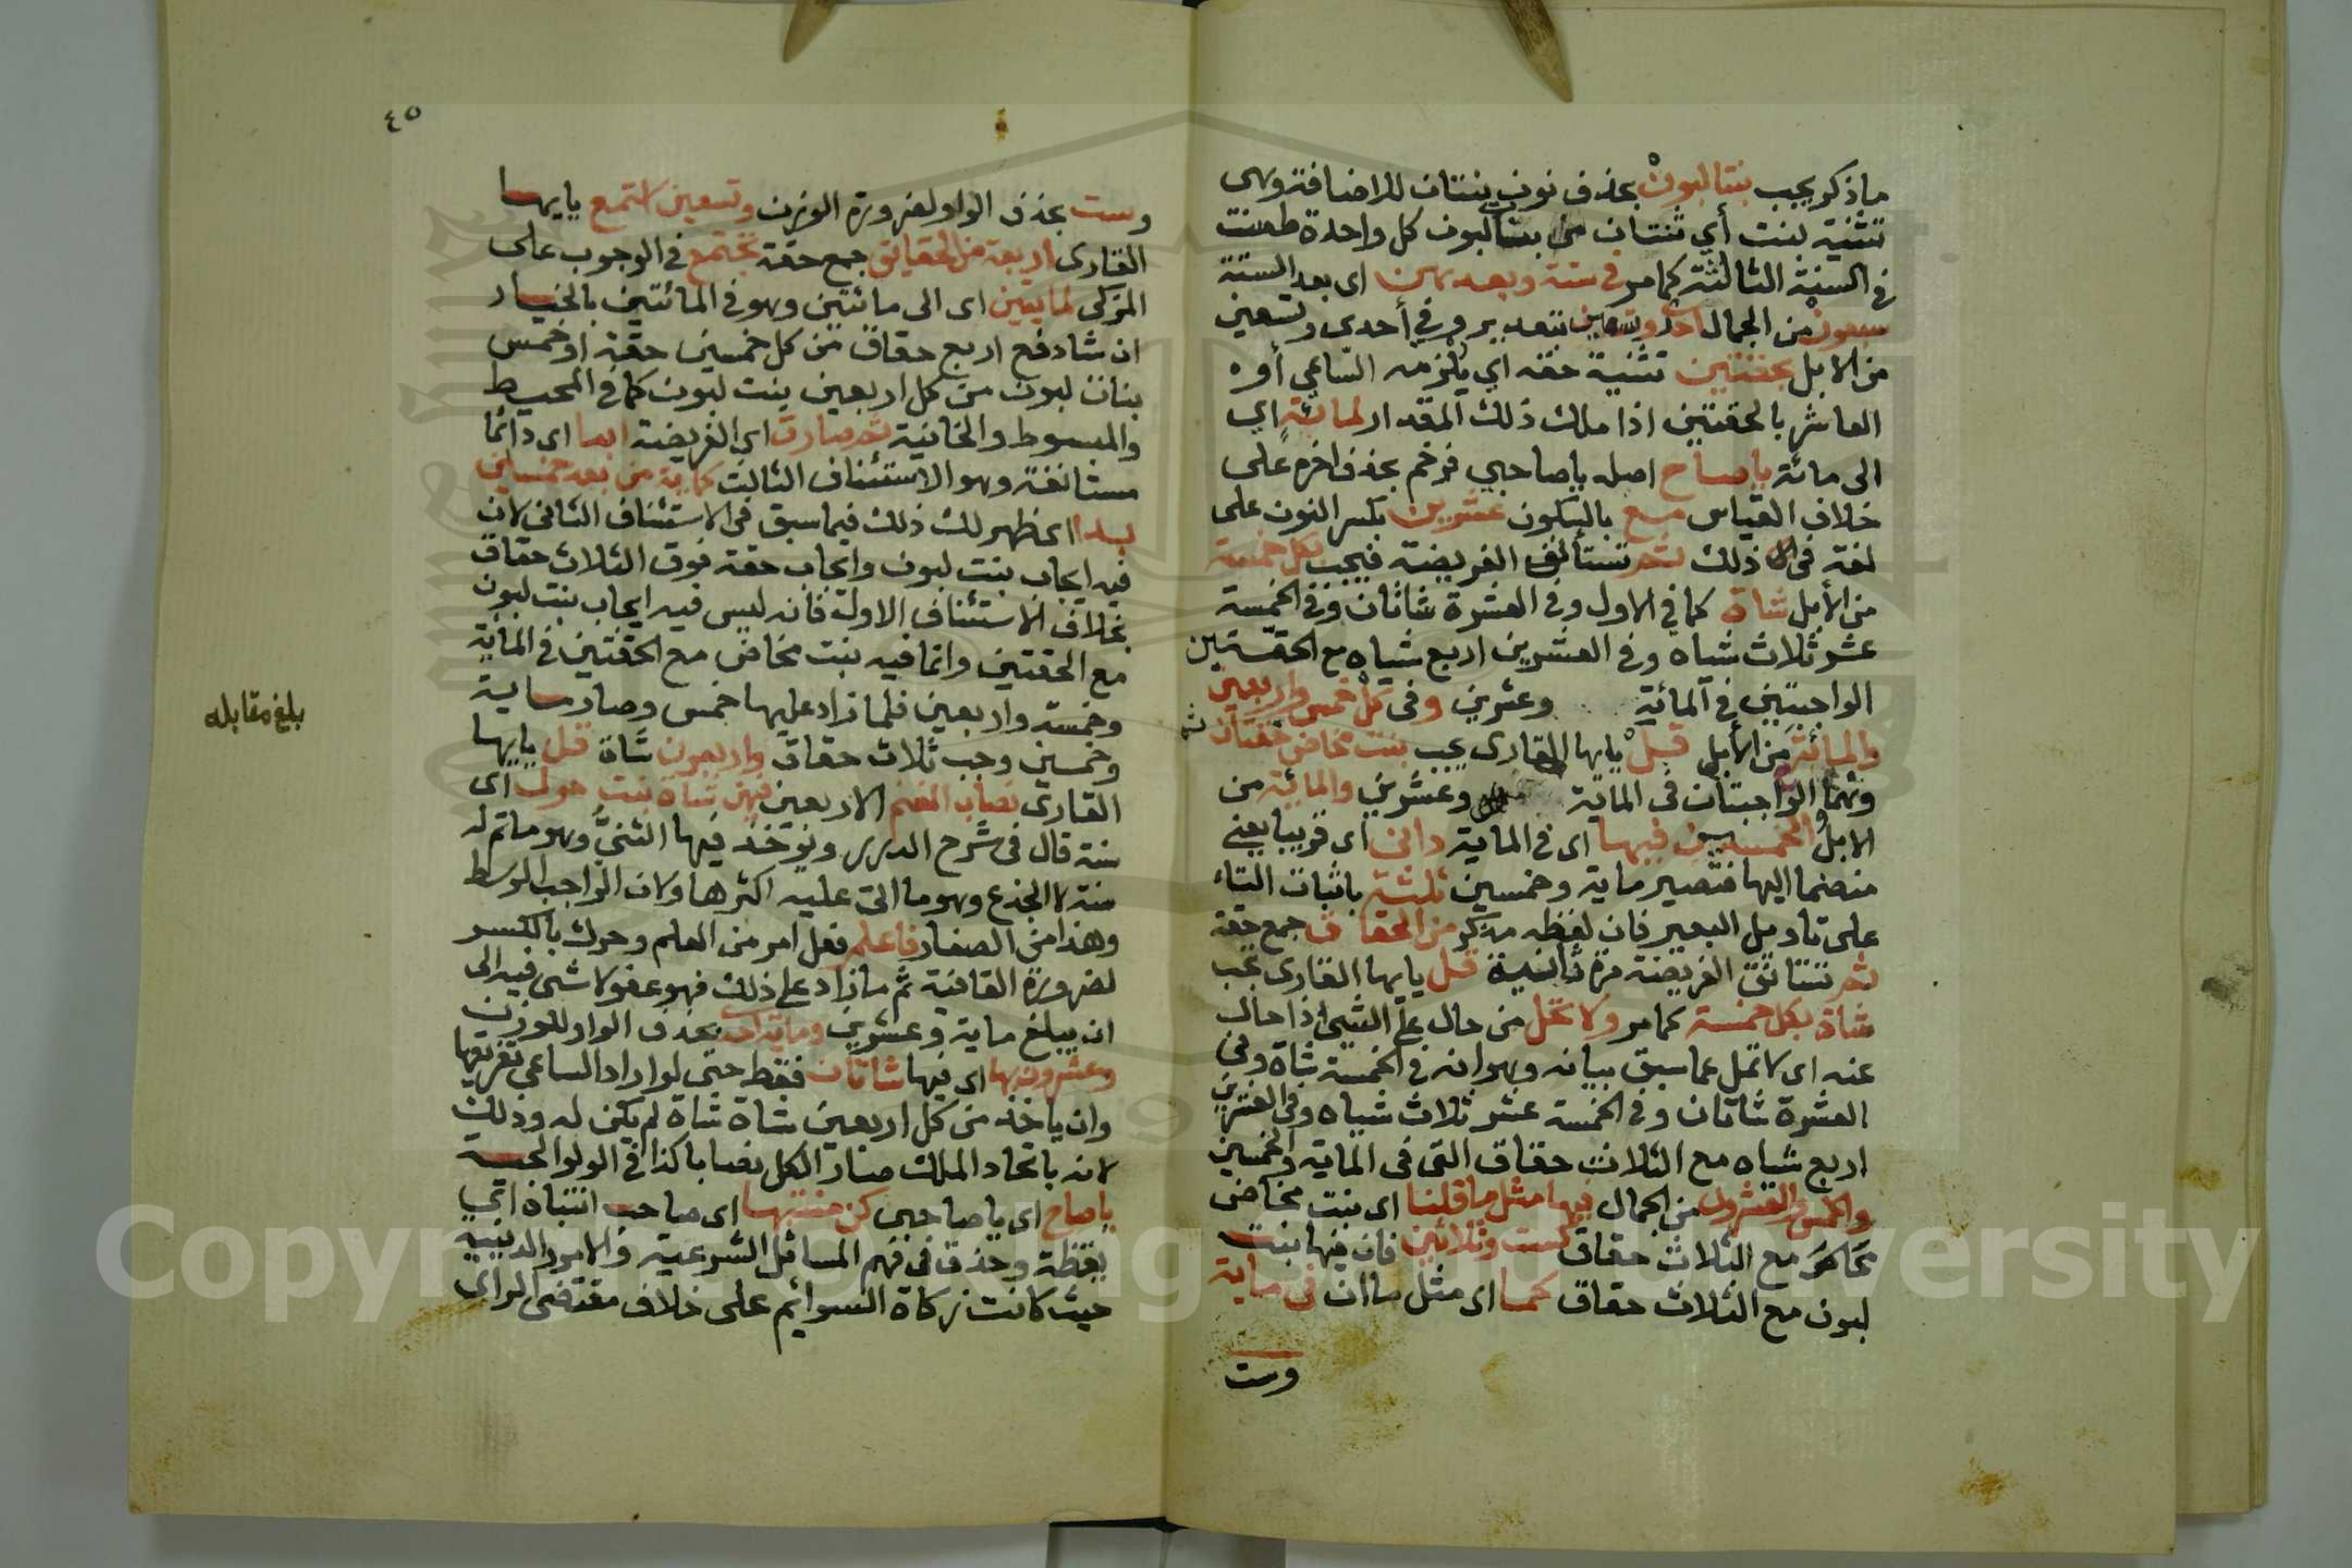 ماذكر يجب بنتا لبون بحذف نون بنتان للاضافة وهى
تثنية بنت أي ثنتان من بنتا لبون كل واحدة طعنت
في السنة الثالثة كما مر في ستة وبعدهن اى بعد الستة
سبعون من الجمال احدى وتسعين بتقدير وفي أحدى وتسعين
من الابل بحقتين تثنية حقه اي يلزمه الساعي أو
العاشر بالحقتين اذا ملك ذلك المقدار لمائة اي
الى مائة ياصاح اصله ياصاحبي فرخم بحذف اخره على
خلاف القياس مع بالسكون عشرين بكسر النون على
لغة في ذلك ثم تستأنف الفريضة فيجب بكل خمسة
من الأبل شاة كما في الاول وفي العشرة شاتان وفي الخمسة
عشر ثلاث شياه وفي العشرين اربع شياه مع الحقتين
الواجبتين في المائة وعشرين وفى كل خمس واربعين
والمائة من الأبل قل يايها القارى يجب بنت مخاض حقتان ثم
وهما الواجبتان فى الماية وعشرين والمائة من
الابل والخمسين فيها اى فى الماية دانى اى قريبا يعني
منضما اليها فتصير ماية وخمسين ثلثة باثبات التاء
على تاويل البعير فان لفظه مذكر من الحقاق جمع حقة
ثم تستانف الفريضة مرة ثانية قل يايها القارى تجب
شاة بكل خمسة كما مر ولا تحل من حال على الشيئ اذا حال
عنه اى لا تمل عما سبق بيانه وهو انه في الخمسة شاة وفي
العشرة شاتان وفي الخمسة عشر ثلاث شياه وفى العشرين
اربع شياه مع الثلاث حقاق التى فى الماية والخمسين
والخمس والعشرون من الجمال فيها مثل ما قلنا اى بنت مخاض
مع الثلاث حقاق كست وثلاثين فان فيها بنت
لبون مع الثلاث حقاق كما اى مثل ما ان في ماية
وست
٤٥
وست بحذف الواو لضرورة الوزن وتسعين استمع يايها
القارى اربعة من الحقايق جمع حقة تجتمع في الوجوب على
المزكى لمايتين اى الى مائتين وهو في المائتين بالخيار
ان شا دفع اربع حقاق من كل خمسين حقة او خمس
بنات لبون من كل اربعين بنت لبون كما فى المحيط
والمبسوط والخانية ثم صارت اى الفريضة ابدا اى دائما
مستانفة وهو الاستئناف الثالث كماية من بعد خمسين
بدا اى ظهر لك ذلك فيما سبق فى الاستئناف الثانى لان
فيه ايجاب بنت لبون وايجاب حقة فوق الثلاث حقاق
بخلاف الاستئناف الاول فانه ليس فيه ايجاب بنت لبون
مع الحقتين وانما فيه بنت مخاض مع الحقتين في الماية
وخمسة واربعين فلما زاد عليها خمس وصار ماية
وخمسين وجب ثلاث حقاق واربعون شاة قل يايها
القارى نصاب الغنم الاربعين فهن شاة بنت حول اى
سنة قال فى شرح الدرر ويؤخذ فيها الثني وهو ما تم له
سنة لا الجذع وهو ما اتى عليه اكثرها ولان الواجب الوسط
وهذا من الصغار فاعلم فعل امر من العلم وحرك بالكسر
لضرورة القافية ثم مازاد على ذلك فهو عفو لا شئ فيه الى
ان يبلغ ماية وعشرين وماية احد بحذف الواو للوزن
وعشرون بها اى فيها شاتان فقط حتى لو اراد الساعي تفريقها
وان ياخذ من كل اربعين شاة شاة لم يكن له وذلك
لانه باتحاد الملك صار الكل نصابا كذا في الولوالجية
ياصاح اى يا صاحبي كن منتبها اى صاحب انتباه اي
يقظة وحذق فى فهم المسائل الشرعية والامور الدينية
حيث كانت زكاة السوائم على خلاف مقتضى الراى
بلغ مقابله
Copyright © King Saud University